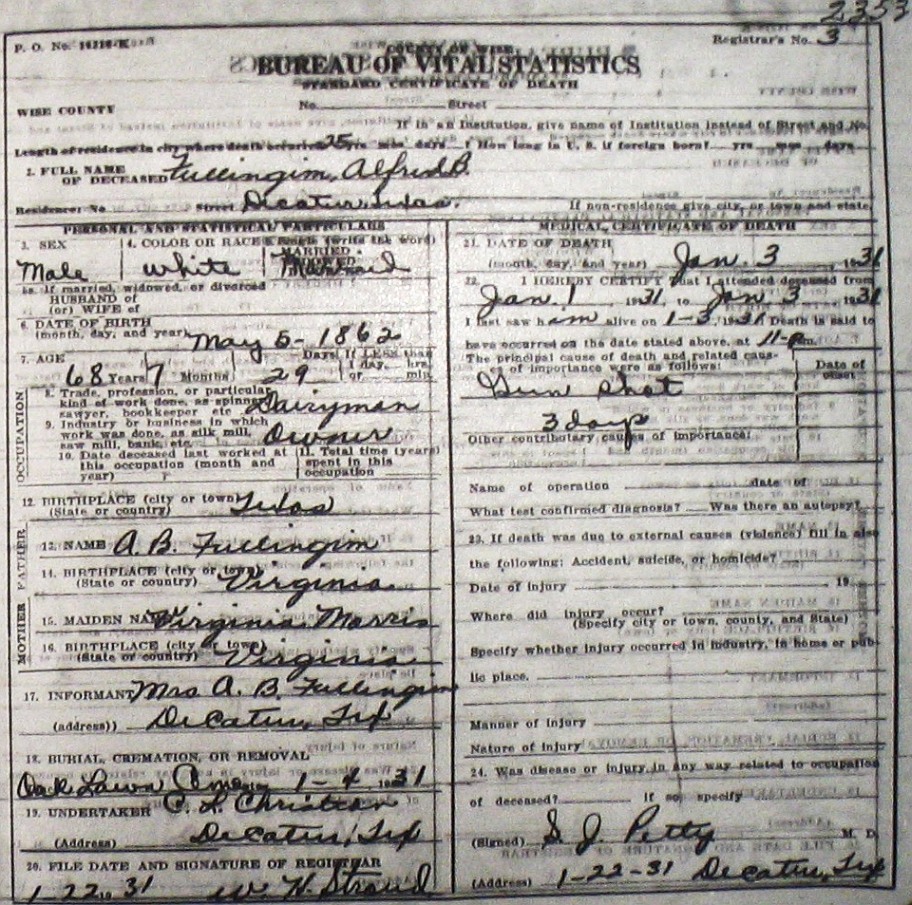 2353
P. O. No.
Registrar's No. 3
COUNTY OF WISE
BUREAU OF VITAL STATISTICS
STANDARD CERTIFICATE OF DEATH
WISE COUNTY
No. Street
If in an Institution, give name of Institution instead of Street and No.
Length of residence in city where death occurred 25 yrs mos days ? How long in U. S. if foreign born? yrs mos days
2. FULL NAME
OF DECEASED Fullingim, Alfred B.
Residence: No Street Decatur, Texas. If non-residence give city, or town and state.
PERSONAL AND STATISTICAL PARTICULARS
3. SEX 4. COLOR OR RACE (write the word)
MARRIED
Male white Married
5a. If married, widowed, or divorced
HUSBAND of
(or) WIFE of
6. DATE OF BIRTH
(month, day, and year) May 5 - 1862
7. AGE Days If LESS than
1 day, hrs.
68 Years 7 Months 29 or min.
OCCUPATION
8. Trade, profession, or particular
kind of work done, as spinner,
sawyer, bookkeeper etc Dairyman
9. Industry or business in which
work was done, as silk mill,
saw mill, bank, etc. Owner
10. Date deceased last worked at 11. Total time (years)
this occupation (month and spent in this
year) occupation
12. BIRTHPLACE (city or town)
(State or country) Texas
FATHER
13. NAME A. B. Fullingim
14. BIRTHPLACE (city or town)
(State or country) Virginia
MOTHER
15. MAIDEN NAME Virginia Morris
16. BIRTHPLACE (city or town)
(State or country) Virginia
17. INFORMANT Mrs A. B. Fullingim
(address)) Decatur, Tex
18. BURIAL, CREMATION, OR REMOVAL
Oak Lawn 1-4 1931
19. UNDERTAKER C. L. Christian
(Address) Decatur, Tex
20. FILE DATE AND SIGNATURE OF REGISTRAR
1-22 19 31 W. H. Stroud
MEDICAL CERTIFICATE OF DEATH
21. DATE OF DEATH
(month, day, and year) Jan. 3 1931
22. I HEREBY CERTIFY That I attended deceased from
Jan. 1 1931 to Jan 3 1931
I last saw him alive on 1-3 1931 Death is said to
have occurred on the date stated above, at 11-P m.
The principal cause of death and related caus-
es of importance were as follows: Date of
onset
Gun shot
3 days
Other contributory causes of importance:
Name of operation date of
What test confirmed diagnosis? Was there an autopsy?
23. If death was due to external causes (violence) fill in also
the following: Accident, suicide, or homicide?
Date of injury 19
Where did injury occur?
(Specify city or town, county, and State)
Specify whether injury occurred in industry, in home or pub-
lic place.
Manner of injury
Nature of injury
24. Was disease or injury in any way related to occupation
of deceased? If so, specify
(Signed) S. J. Petty M. D.
(Address) 1-22-31 Decatur, Tex